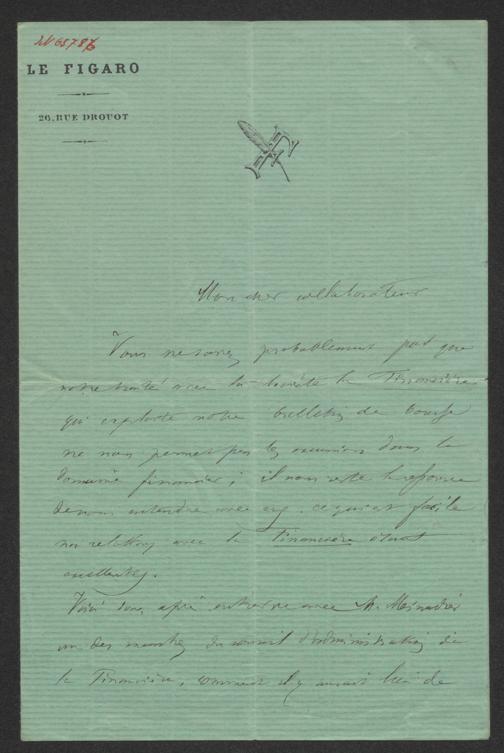 LE FIGARO
26, RUE DROUOT
Mon cher collaborateur
Vous ne savez probablement pas que
notre traité avec la Société la Financière
qui exploite notre bulletin de bourse
ne nous permet pas les excursions dans le
domaine financier ; il nous reste la
de nous entendre avec eux, ce qui est facile
nos relations avec la Financière étant
excellentes.
Voici donc, après entrevue avec M.
un des membres du conseil d'administration de
la Financière, comment il y aurait lieu de